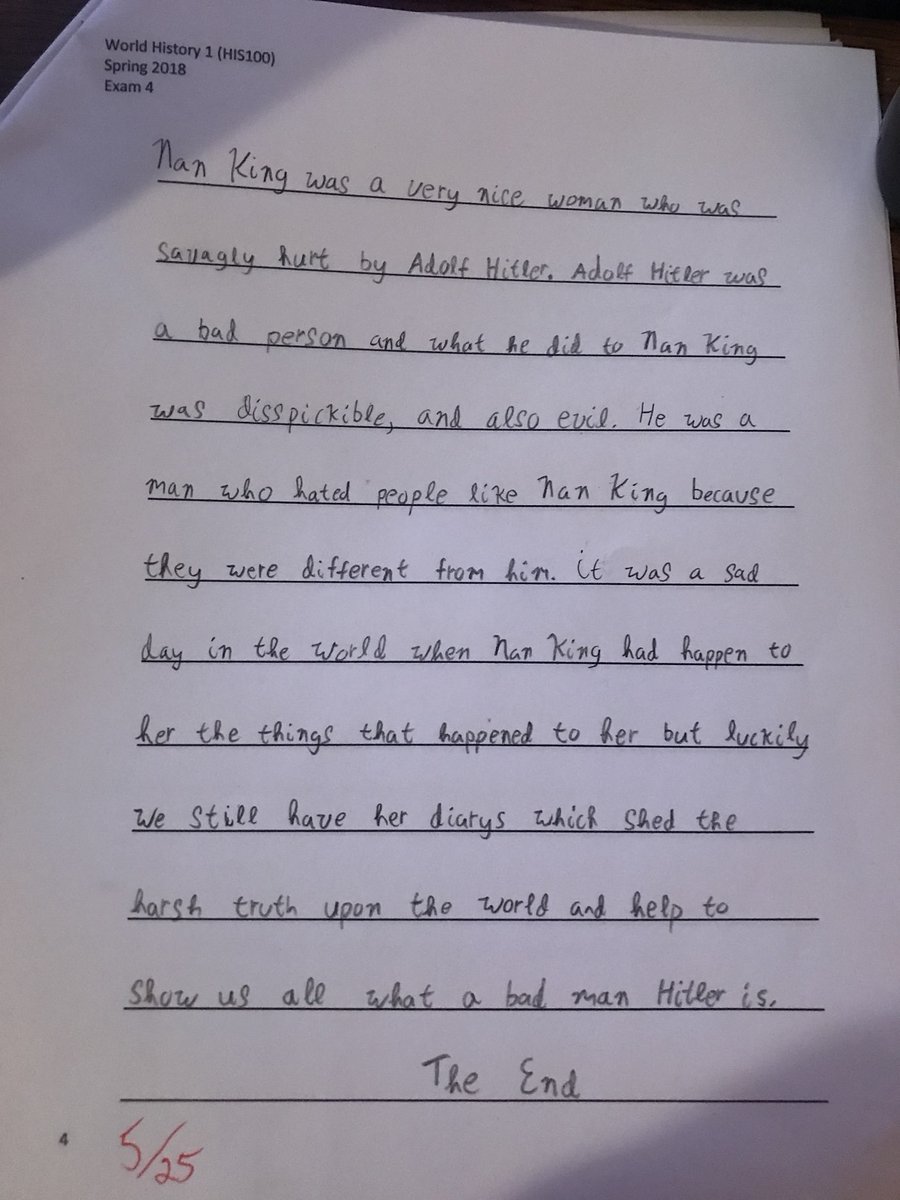 World History 1 (HIS100)
Spring 2018
Exam 4
Nan King was a very nice woman who was
savagly hurt by Adolf Hitler. Adolf Hitler was
a bad person and what he did to Nan King
was disspickible, and also evil. He was a
man who hated people like Nan King because
they were different from him. it was a sad
day in the world when Nan King had happen to
her the things that happened to her but luckily
we still have her diarys which shed the
harsh truth upon the world and help to
show us all what a bad man Hitler is.
The End
4
5/25